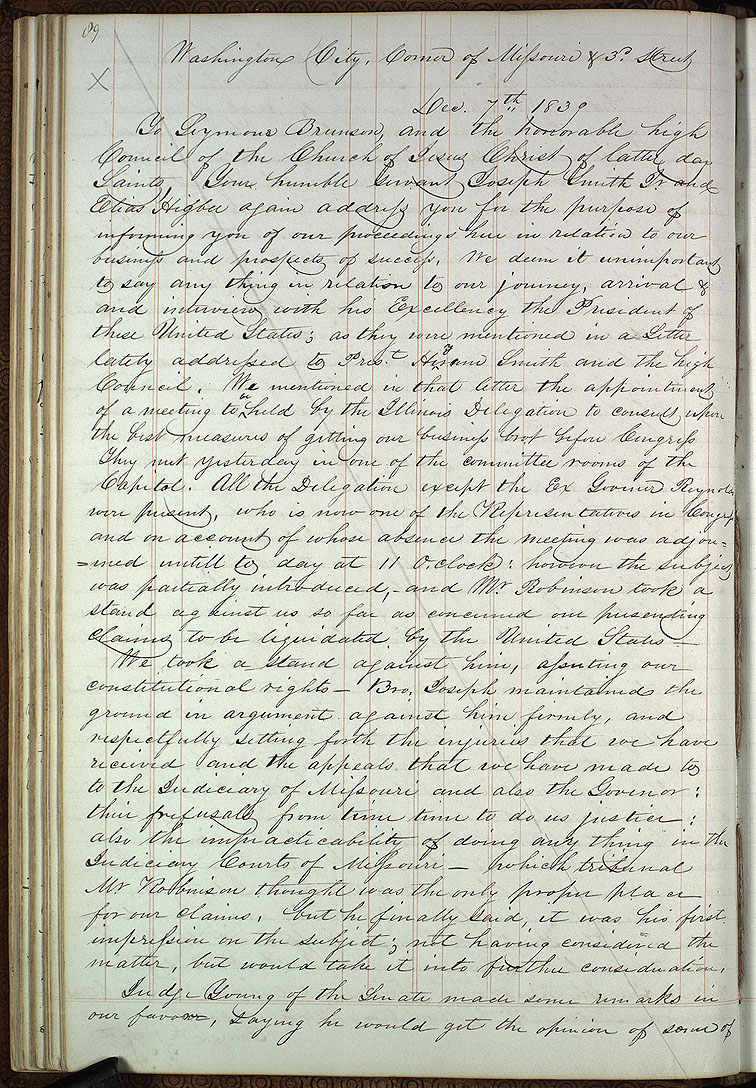 89
Washington City, Corner of Missouri & 3d. Street
Dec. 7th 1839
To Seymour Brunson, and the honorable high
Council of the Church of Jesus Christ of latter day
Saints, Your humble Servant Joseph Smith Jr and
Elias Higbee again address you for the purpose of
informing you of our proceedings here in relation to our
business and prospects of success. We deem it unimportant
to say any thing in relation to our journey, arrival &
and interview with his Excellency the President of
these United States; as they were mentioned in a Letter
lately addressed to Prest. Hyrum Smith and the high
Council. We mentioned in that letter the appointment
of a meeting to be held by the Illinois Delegation to consult upon
the best measures of getting our business brot before Congress
They met yesterday in one of the committee rooms of the
Capitol. All the Delegation except the Ex Govenor Reynolds
were present, who is now one of the Representatives in Congress
and on account of whose absence the meeting was adjou=
=rned untill to day at 11 O.clock: however the subject
was partially introduced,- and Mr. Robinson took a
stand against us so far as concerned our presenting
claims to be liquidated by the United States—
We took a stand against him, asserting our
constitutional rights— Bro. Joseph maintained the
ground in argument against him firmly, and
respectfully setting forth the injuries that we have
received and the appeals that we have made to
to the Judiciary of Missouri and also the Govenor:
their refusals from time time to do us justice:
also the impracticability of doing any thing in the
Judiciary Courts of Missouri— which tribunal
Mr Robbinson thought was the only proper place
for our claims, but he finally said, it was his first
impression on the subject; not having considered the
matter, but would take it into further consideration.
Judge Young of the Senate made some remarks in
our favor, saying he would get the opinion of some of